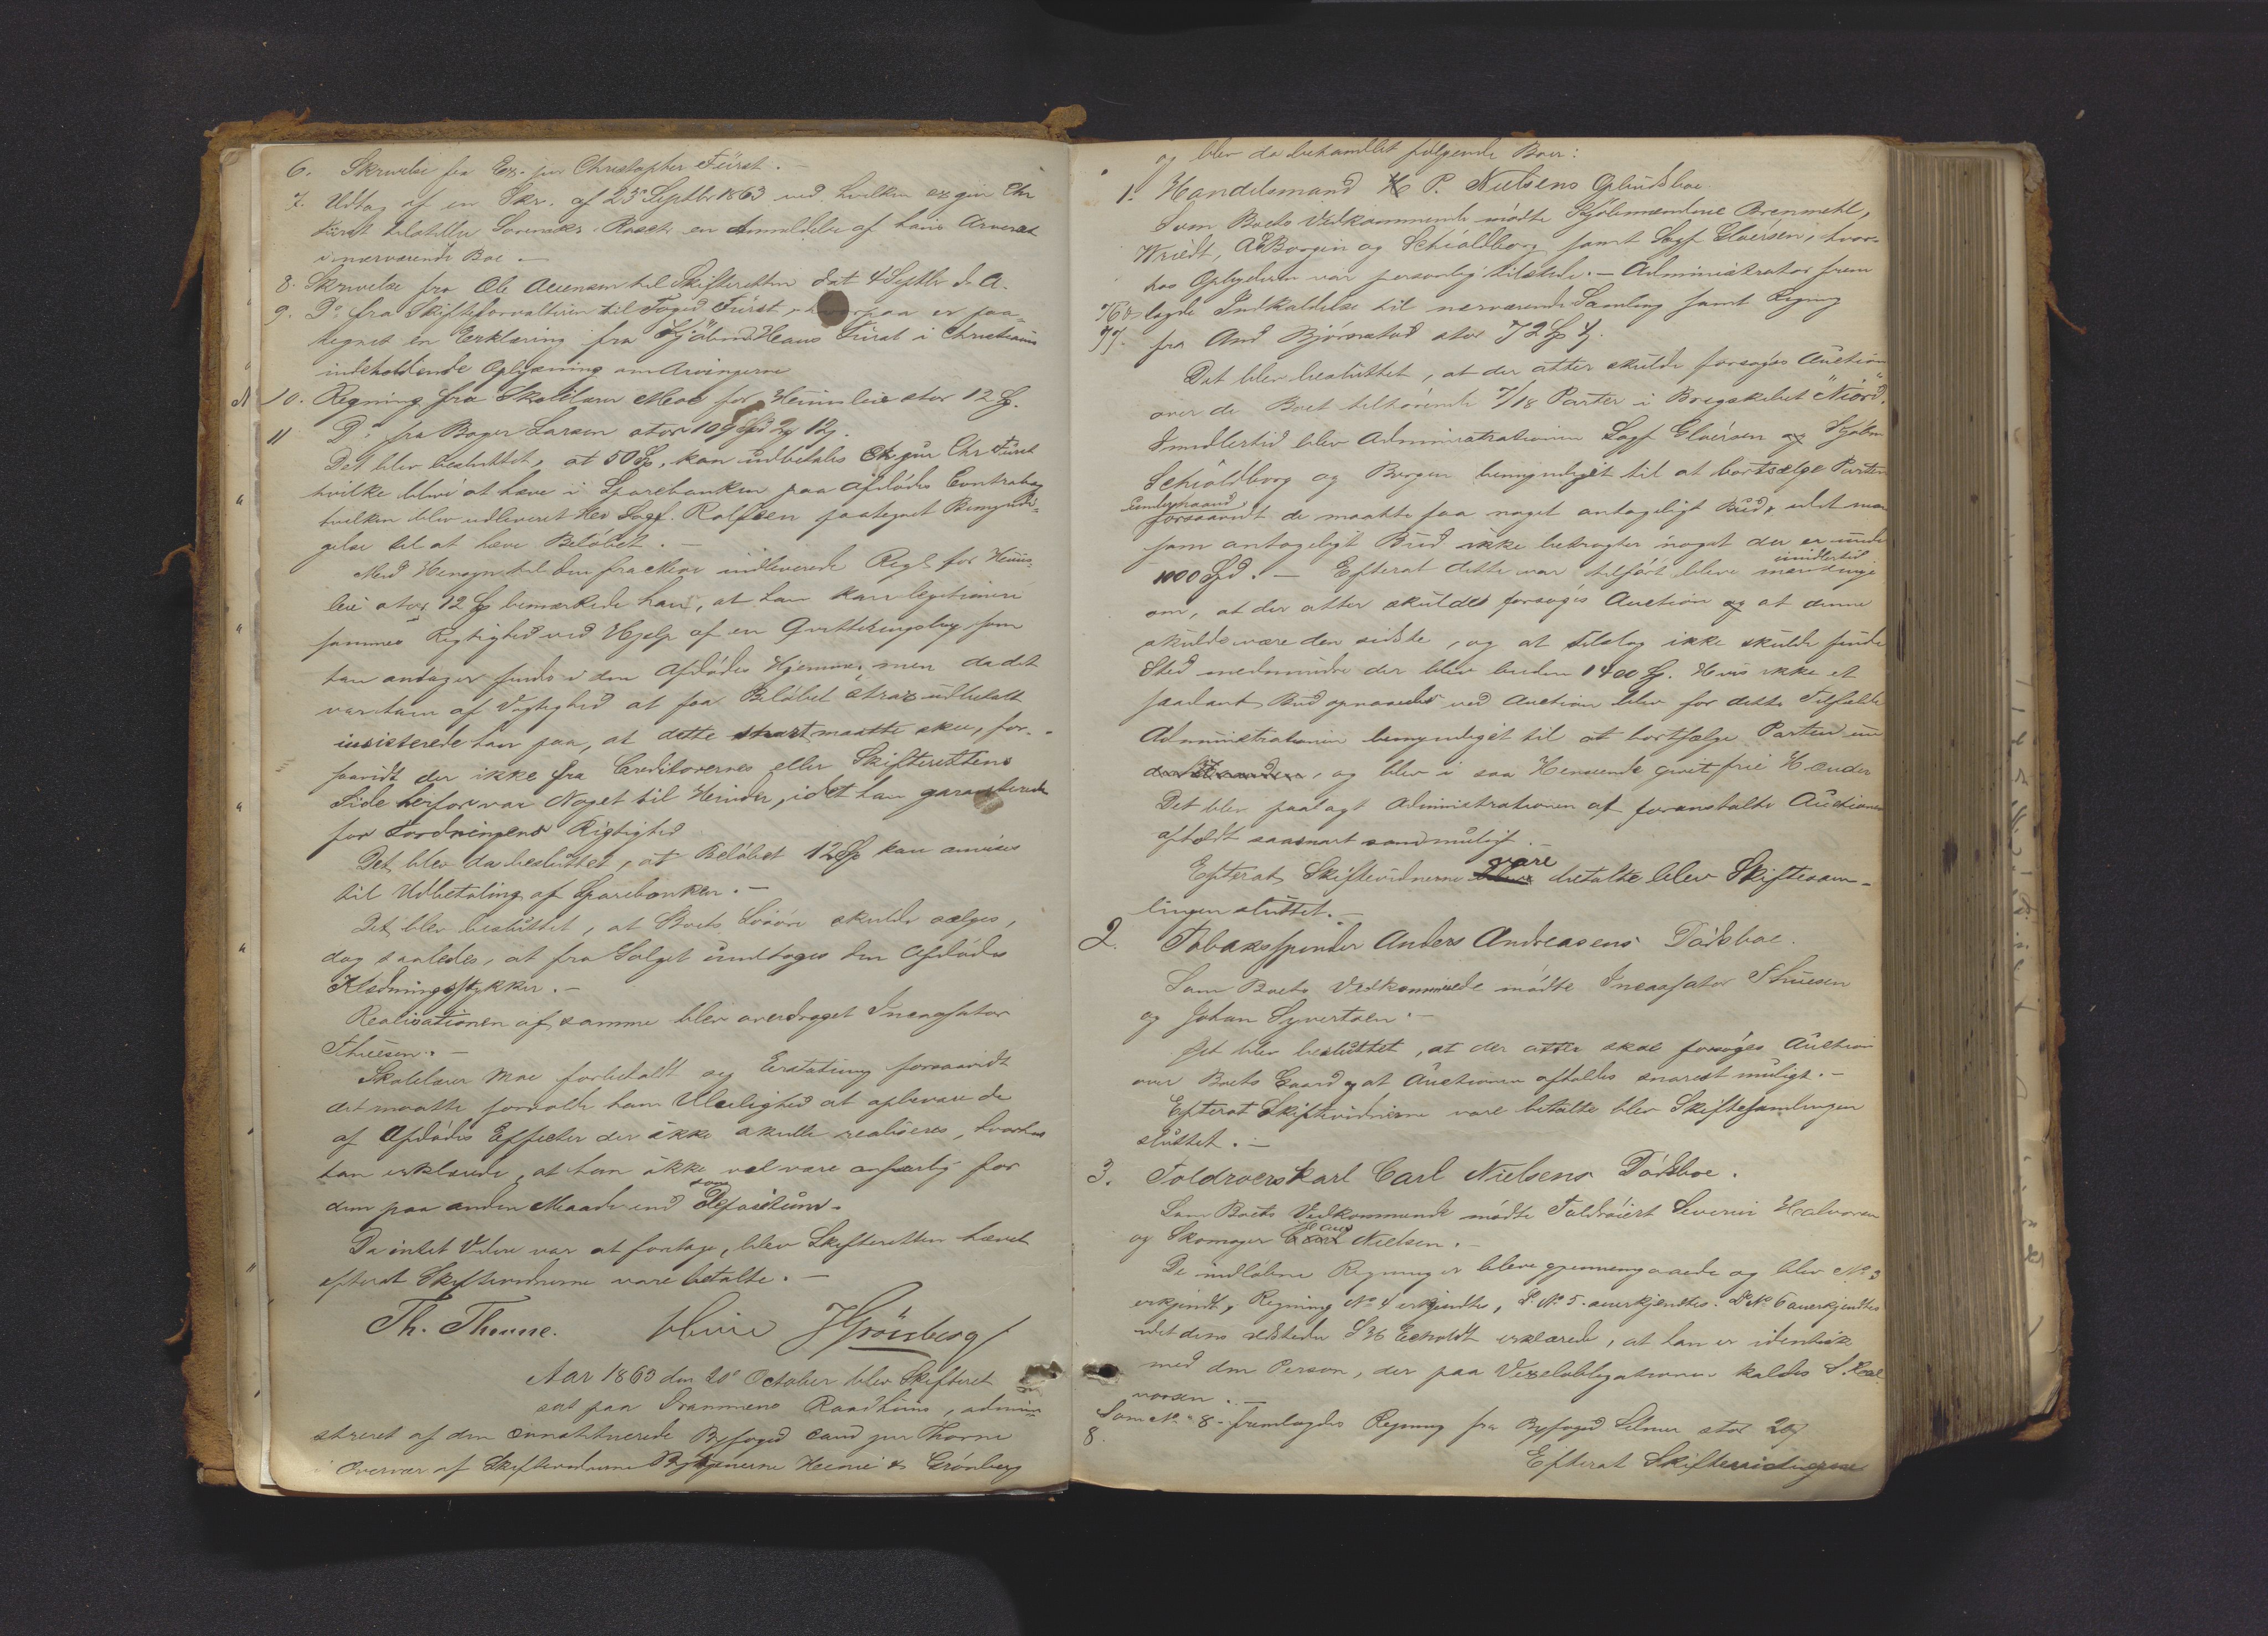 6. Skrivelse fra Ex. jur Christopher Fürst.
7. Udtog af en Skr. af 25 Septbr 1863 ved hvilken ex jur Chr
Fürst tilstiller Sorenskr. Rasch en Anmeldelse af hans Arveret
i nærværende Boe.
8. Skrivelse fra Ole Avensen til Skifteretten dat 4 Septbr d. A.
9. Do fra Skifteforvalteren til Foged Fürst, hvorpaa er paa-
tegnet en Erklæring fra Kjøbmd Hans Fürst i Christiania
indeholdende Oplysning om Arvingerne
10. Regning fra Skolelærer Moe for Huusleie stor 12 Spd.
11 Do fra Bager Larsen stor 10
Det blev besluttet, at 50 Spd, kan udbetales Ex jur Chr Fürst
hvilke blive at hæve i Sparebanken paa Afdødes Contrabog
hvilken blev udleveret Hr Sagf. Rolfsen paategnet Bemyndi-
gelse til at hæve Beløbet.
Med Hensyn til den fra Moe indleverede Regs for Huus-
leie stor 12 Spd bemærkede han, at han kan legitimere
sammes Rigtighed ved Hjelp af en Qvitteringsbog som
han antager findes i den Afdødes Gjemme, men da det
var ham af Vigtighed at faa Beløbet strax udbetalt
insisterede han paa, at dette strart maatte skee, for-
saavidt der ikke fra Creditorernes eller Skifterettens
Side herfor var Noget til Hinder, idet han garanterede
for Fordringens Rigtighed
Det blev da besluttet, at Beløbet 12 Spd kan anvises
til Udbetaling af Sparebanken.
Det blev besluttet, at Boets Løsøre skulde sælges,
dog saaledes, at fra Salget undtoges den Afdødes
Klædningsstykker.
Realisationen af samme blev overdraget Incassator
Thuesen.
Skolelærer Moe forbeholdt sig Erstatning forsaavidt
det maatte forvolde ham Uleilighed at opbevare de
af Afdødes Effecter der ikke skulle realiseres, hvorhos
han erklærede, at han ikke vil være ansvarlig for
dem paa anden Maade end som Depositum.
Da intet Videre var at foretage, blev Skifteretten hævet
efterat Skiftevidnerne vare betalte.
Th. Thorne. Heine J Grönberg
Aar 1863 den 20de October blev Skifteret
sat paa Drammens Raadhuus, admini-
streret af den constituerede Byfoged Cand jur Thorne
i Overvær af Skiftevidnerne Bytjenerne Heine & Grönberg
og blev da behandlet følgende Boer:
1. Handelsmand H P. Nielsens Opbudsboe
Som Boets Vedkommende mödte Kjöbmændene Brenmehl,
Wriedt, Borgen og Schioldborg samt Sagf Gloersen, hvor-
hos Opbyderen var personlig tilstede. — Administrator frem
76 & lagde Indkaldelse til nærværende Samling samt Regning
77. fra And Bjørnstad stor 72
Det blev besluttet, at der atter skulde forsøges Auction
over de Boet tilhørende 7/18 Parter i Brigskibet "Niörd".
Imidlertid blev Administrationen Sagf Gloersen og Kjøbm
Schioldborg og Borgen bemyndiget til at bortsælge Parten
underhaand
forsaavidt de maatte faa noget antageligt Bud, idet man
som antageligt Bud ikke betragter noget der er under
1000 Spd. — Efterat dette var tilført bleve imidlertid
om, at der atter skuldes forsøges Auction og at denne
skulde være den sidste, og at Tilslag ikke skulde finde
Sted medmindre der blev buden 1400 Spd. Hvis ikke et
saadant Bud opnaaedes ved Auction blev for dette Tilfælde
Administrationen bemyndiget til at bortsælge Parten un
derhaanden, og blev i saa Henseende givet frie Hænder
Det blev paalagt Administrationen at foranstalte Auctionen
afholdt saasnart som muligt.
Efterat Skiftevidnerne vare betalte blev Skiftesam-
lingen sluttet.
2. Tobaksspinder Anders Andreasens Dødsboe.
Som Boets Vedkommende mødte Incassator Thuesen
og Johan Syvertsen.
Det blev besluttet, at der atter skal forsøges Auction
over Boets Gaard og at Auctionen afholdes snarest muligt.
Efterat Skiftevidnerne vare betalte blev Skiftesamlingen
sluttet.
3. Toldroerskarl Carl Nielsens Dödsboe.
Som Boets Vedkommende mødte Toldbetjent Severin Halvorsen
og Skomager Hans Nielsen.
De indløbne Regninger bleve gjennemgaaede og blev No 3
erkjendt, Regning No 4 erkjendtes, Do No 5. anerkjendtes. Do No 6 anerkjendtes
idet den tilstedev S H Eckholdt erklærede, at han er identisk
med den Person, der paa Vexelobligationen kaldes S. Hal
vorsen.
Som No 8 fremlagdes Regning fra Byfoged Selmer stor
8.
Efterat Skiftevidnerne